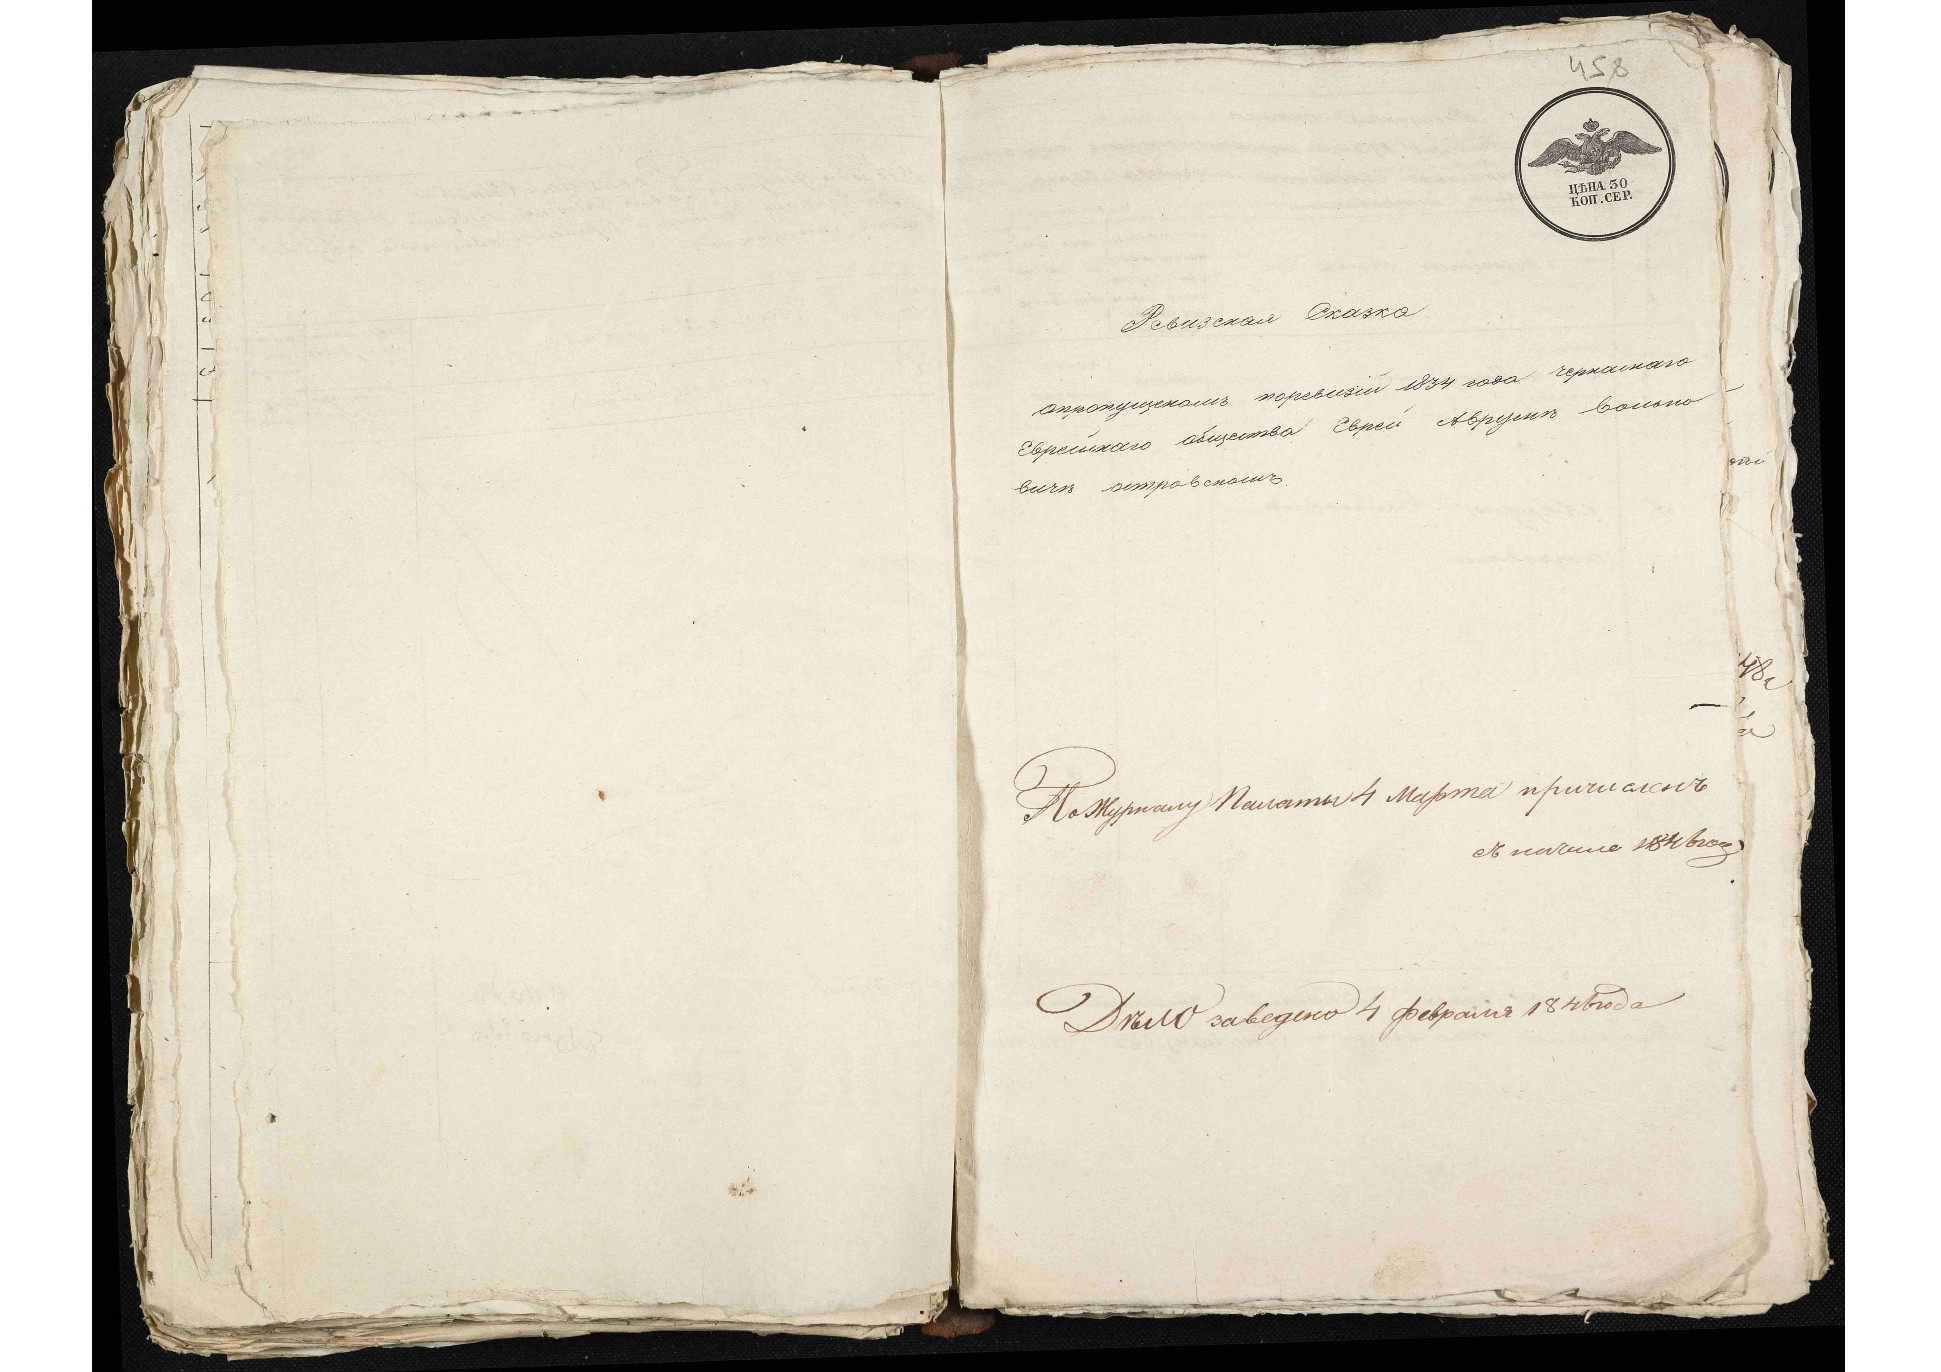 458
ЦѢНА 30
КОП. СЕР.
Ревизская Сказка
опропущеномъ поревизіи 1834 года черкаскаго
Еврейскаго общества Еврей Аврумъ Волько
вичъ островскомъ
По Журналу Палаты 4 Марта причисленъ
съ начала
Дѣло заведено 4 февраля года